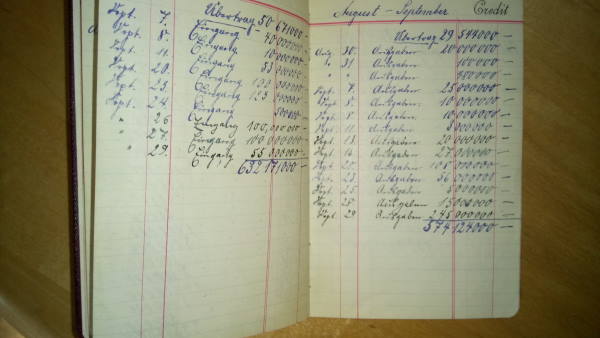 Übertrag 50 671000 —
Sept. 7. Eingang 40 000000 —
Sept. 8. Eingang 10 000000 —
Sept. 11. Eingang 53 000000 —
Sept. 20. Eingang 100 000000 —
Sept. 23. Eingang 123 000000 —
Sept. 24. Eingang 500000 —
" 26 Eingang 100,000,000 —
" 27. Eingang 100 000000 —
" 29. Eingang 55 000000 —
632 171000 —
August - September Credit
Übertrag 29 544000 —
Aug. 30. Ausgaben 20 000000 —
" 31. Ausgaben 100000 —
" " Ausgaben —
Sept. 7. Ausgaben 25 000000 —
Sept. 8. Ausgaben 10 000000 —
Sept. 8 Ausgaben —
Sept. 11. Ausgaben —
Sept. 13. Ausgaben 20 000000 —
Sept. 14. Ausgaben —
Sept. 20. Ausgaben —
Sept. 23. Ausgaben 36 000000 —
Sept. 25 Ausgaben —
Sept. 28. Ausgaben —
Sept. 29 Ausgaben 245 000000 —
574 124000 —